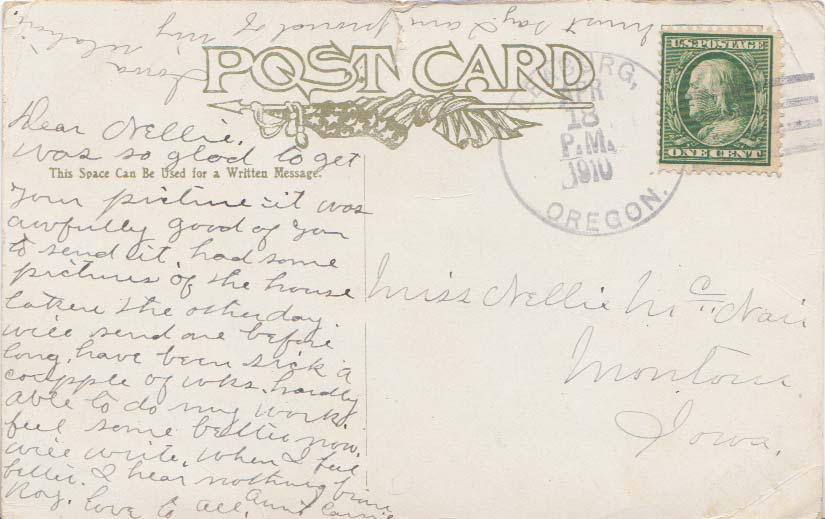 must say I am proud of my
Iowa relation.
POST CARD
U.S. POSTAGE
ONE CENT
APR
18
P.M.
1910
OREGON.
Dear Nellie.
was so glad to get
This Space Can Be Used for a Written Message.
your picture - it was
awfully good of you
to send it. had some
pictures of the house
taken the other day.
will send one before
long. have been sick a
coupple of wks. hardly
able to do my work.
feel some better now.
will write. When I feel
better. I hear nothing from
Roy. love to all. Aunt Carrie
Miss Nellie McNair
Montour
Iowa.